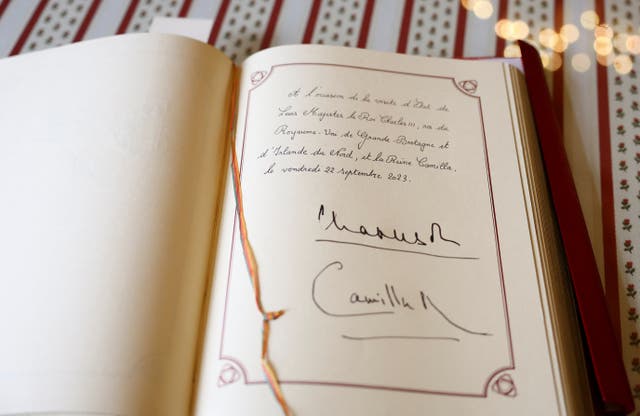 A l'occasion de la visite d'Etat de
Leurs Majestés le Roi Charles III, roi du
Royaume-Uni de Grande-Bretagne et
d'Irlande du Nord, et la Reine Camilla,
le vendredi 22 septembre 2023.
Charles R
Camilla R